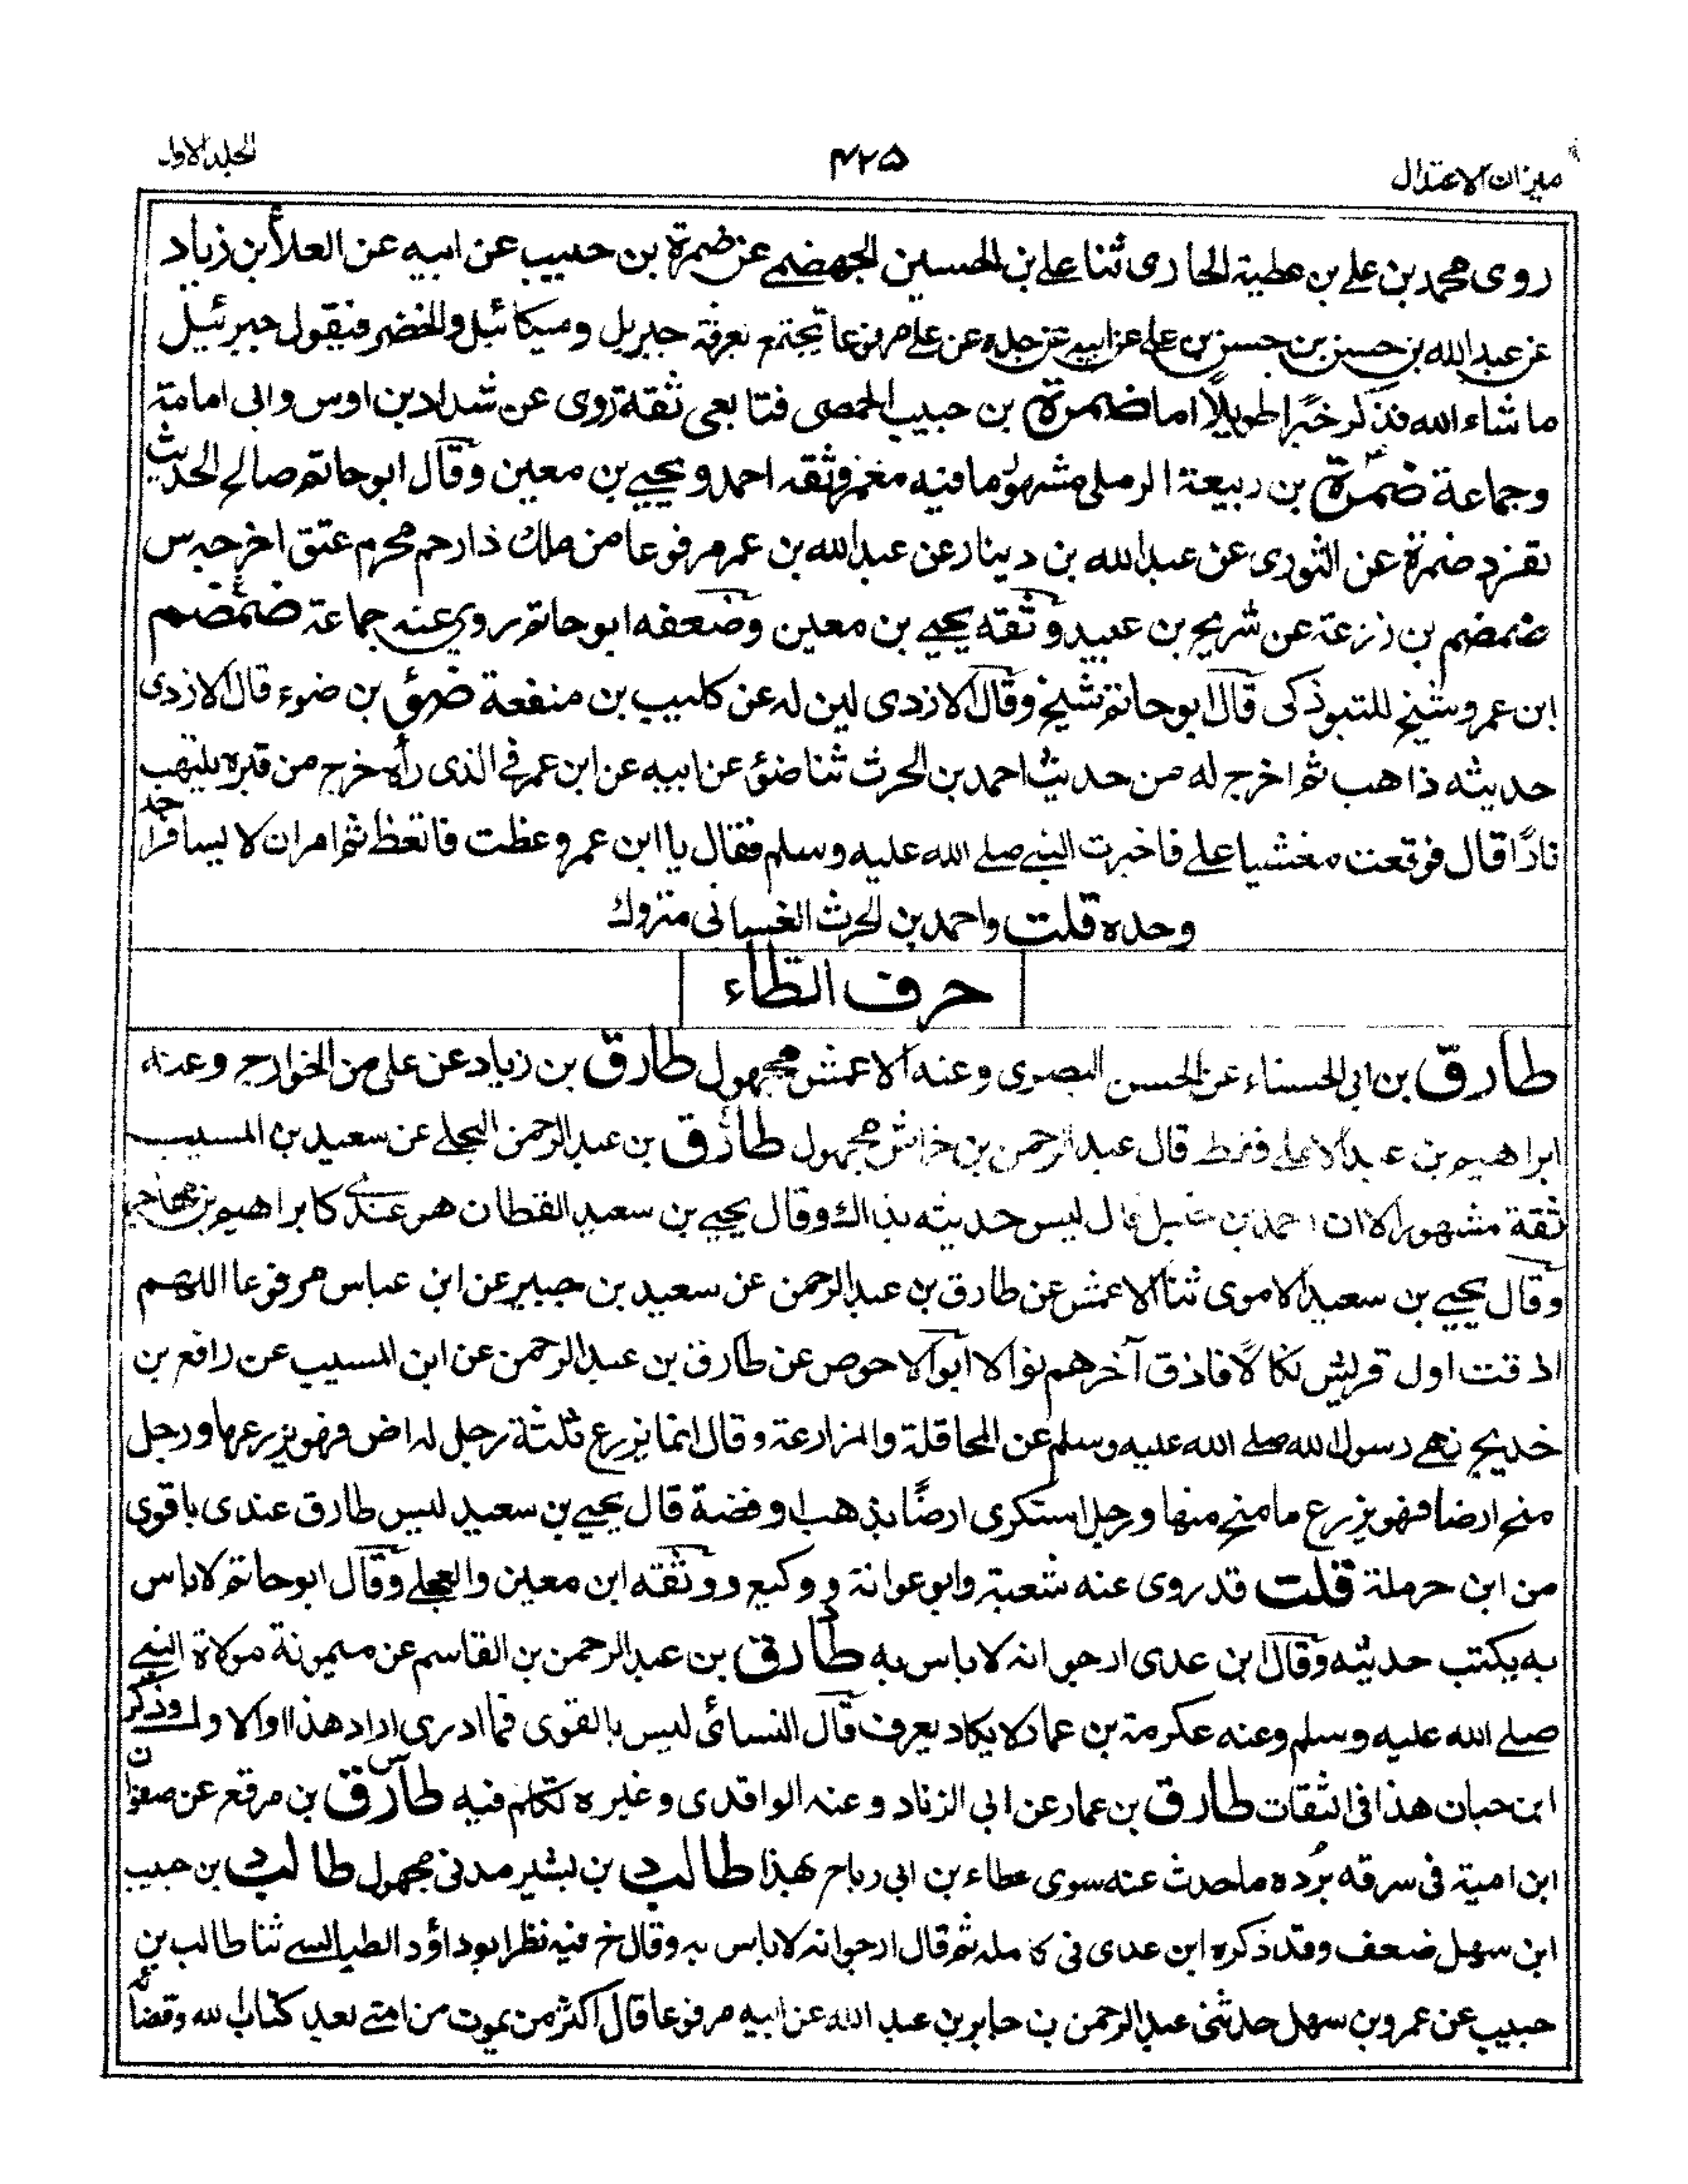 ميزان الاعتدال
٤٢٥
الجلد الاول
روى محمد بن على بن عطية الحارى ثنا على بن الحسين الجهضمى عن ضمرة بن حبيب عن ابيه عن العلأ بن زياد
عن عبد الله بن حسن بن حسن بن على عن ابيه عن جده عن على مرفوعا يجتمع بعرفة جبريل وميكائيل والخضر فيقول جبرئيل
ما شاء الله فذكر خبرا طويلاً اما ضمرة بن حبيب الحمصى فتابعى ثقة روى عن شداد بن اوس وابى امامة
وجماعة ضمرة بن ربيعة الرملى مشهور ما فيه مغمز وثقه احمد ويحيى بن معين وقال ابو حاتم صالح الحديث
تفرد ضمرة عن الثورى عن عبد الله بن دينار عن عبد الله بن عمر مرفوعا من ملك ذا رحم محرم عتق اخرجه س
ضمضم بن زرعة عن شريح بن عبيد وثقه يحيى بن معين وضعفه ابو حاتم روى عنه جماعة ضمضم
ابن عمرو شيخ للتبوذكى قال ابو حاتم شيخ وقال الازدى لين له عن كليب بن منفعة ضوٴ بن ضوء قال الازدى
حديثه ذاهب ثم اخرج له من حديث احمد بن الحرث ثنا ضوٴ عن ابيه عن ابن عمر فى الذى رأه خرج من قبره يلتهب
نارًا قال فوقعت مغشيا على فاخبرت النبى صلى الله عليه وسلم فقال يا ابن عمر وعظت فاتعظ ثم امر ان لا يسافر احد
وحده قلت واحمد بن الحرث الغسانى متروك
حرف الطاء
طارق بن ابى الحسناء عن الحسن البصرى وعنه الاعمش مجهول طارق بن زياد عن على من الخوارج وعنه
ابراهيم بن عبد الاعلى فقط قال عبد الرحمن بن خراش مجهول طارق بن عبد الرحمن البجلى عن سعيد بن المسيب
ثقة مشهور الا ان احمد بن حنبل قال ليس حديثه بذاك وقال يحيى بن سعيد القطان هو عندى كابراهيم بن مهاجر
وقال يحيى بن سعيد الاموى ثنا الاعمش عن طارق بن عبد الرحمن عن سعيد بن جبير عن ابن عباس مرفوعا اللهم
اذقت اول قريش نكالاً فاذق آخرهم نوالا ابو الاحوص عن طارق بن عبد الرحمن عن ابن المسيب عن رافع بن
خديج نهى رسول الله صلى الله عليه وسلم عن المحاقلة والمزارعة وقال انما يزرع ثلثة رجل له ارض فهو يزرعها ورجل
منح ارضا فهو يزرع ما منح منها ورجل استكرى ارضًا بذهب او فضة قال يحيى بن سعيد ليس طارق عندى باقوى
من ابن حرملة قلت قد روى عنه شعبة وابو عوانة ووكيع ووثقه ابن معين والعجلى وقال ابو حاتم لا باس
به يكتب حديثه وقال ابن عدى ارجو انه لا باس به طارق بن عبد الرحمن بن القاسم عن ميمونة مولاة النبى
صلى الله عليه وسلم وعنه عكرمة بن عمار لا يكاد يعرف قال النسائى ليس بالقوى فما ادرى اراد هذا او الاول وذكر
ابن حبان هذا فى الثقات طارق بن عمار عن ابى الزناد وعنه الواقدى وغيره تكلم فيه طارق س بن مرقع عن صفوان
ابن امية فى سرقه بُرده ما حدث عنه سوى عطاء بن ابى رباح بهذا طالب بن بشير مدنى مجهول طالب د بن حبيب
ابن سهل ضعف وقد ذكره ابن عدى فى كامله ثم قال ارجو انه لا باس به وقال خ فيه نظر ابو داؤد الطيالسى ثنا طالب بن
حبيب عن عمرو بن سهل حدثنى عبد الرحمن بن جابر بن عبد الله عن ابيه مرفوعا قال اكثر من يموت من امتى بعد كتاب الله وقضائه